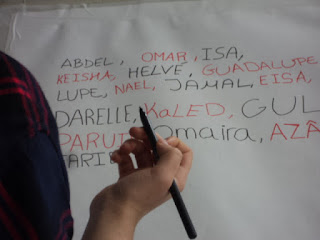 ABDEL, OMAR, ISA,
KEISHA, HELVÉ, GUADALUPE
LUPE, NAEL, JAMAL, EISA,
DARELLE, KALED, GUL
Omaira, AZÂ